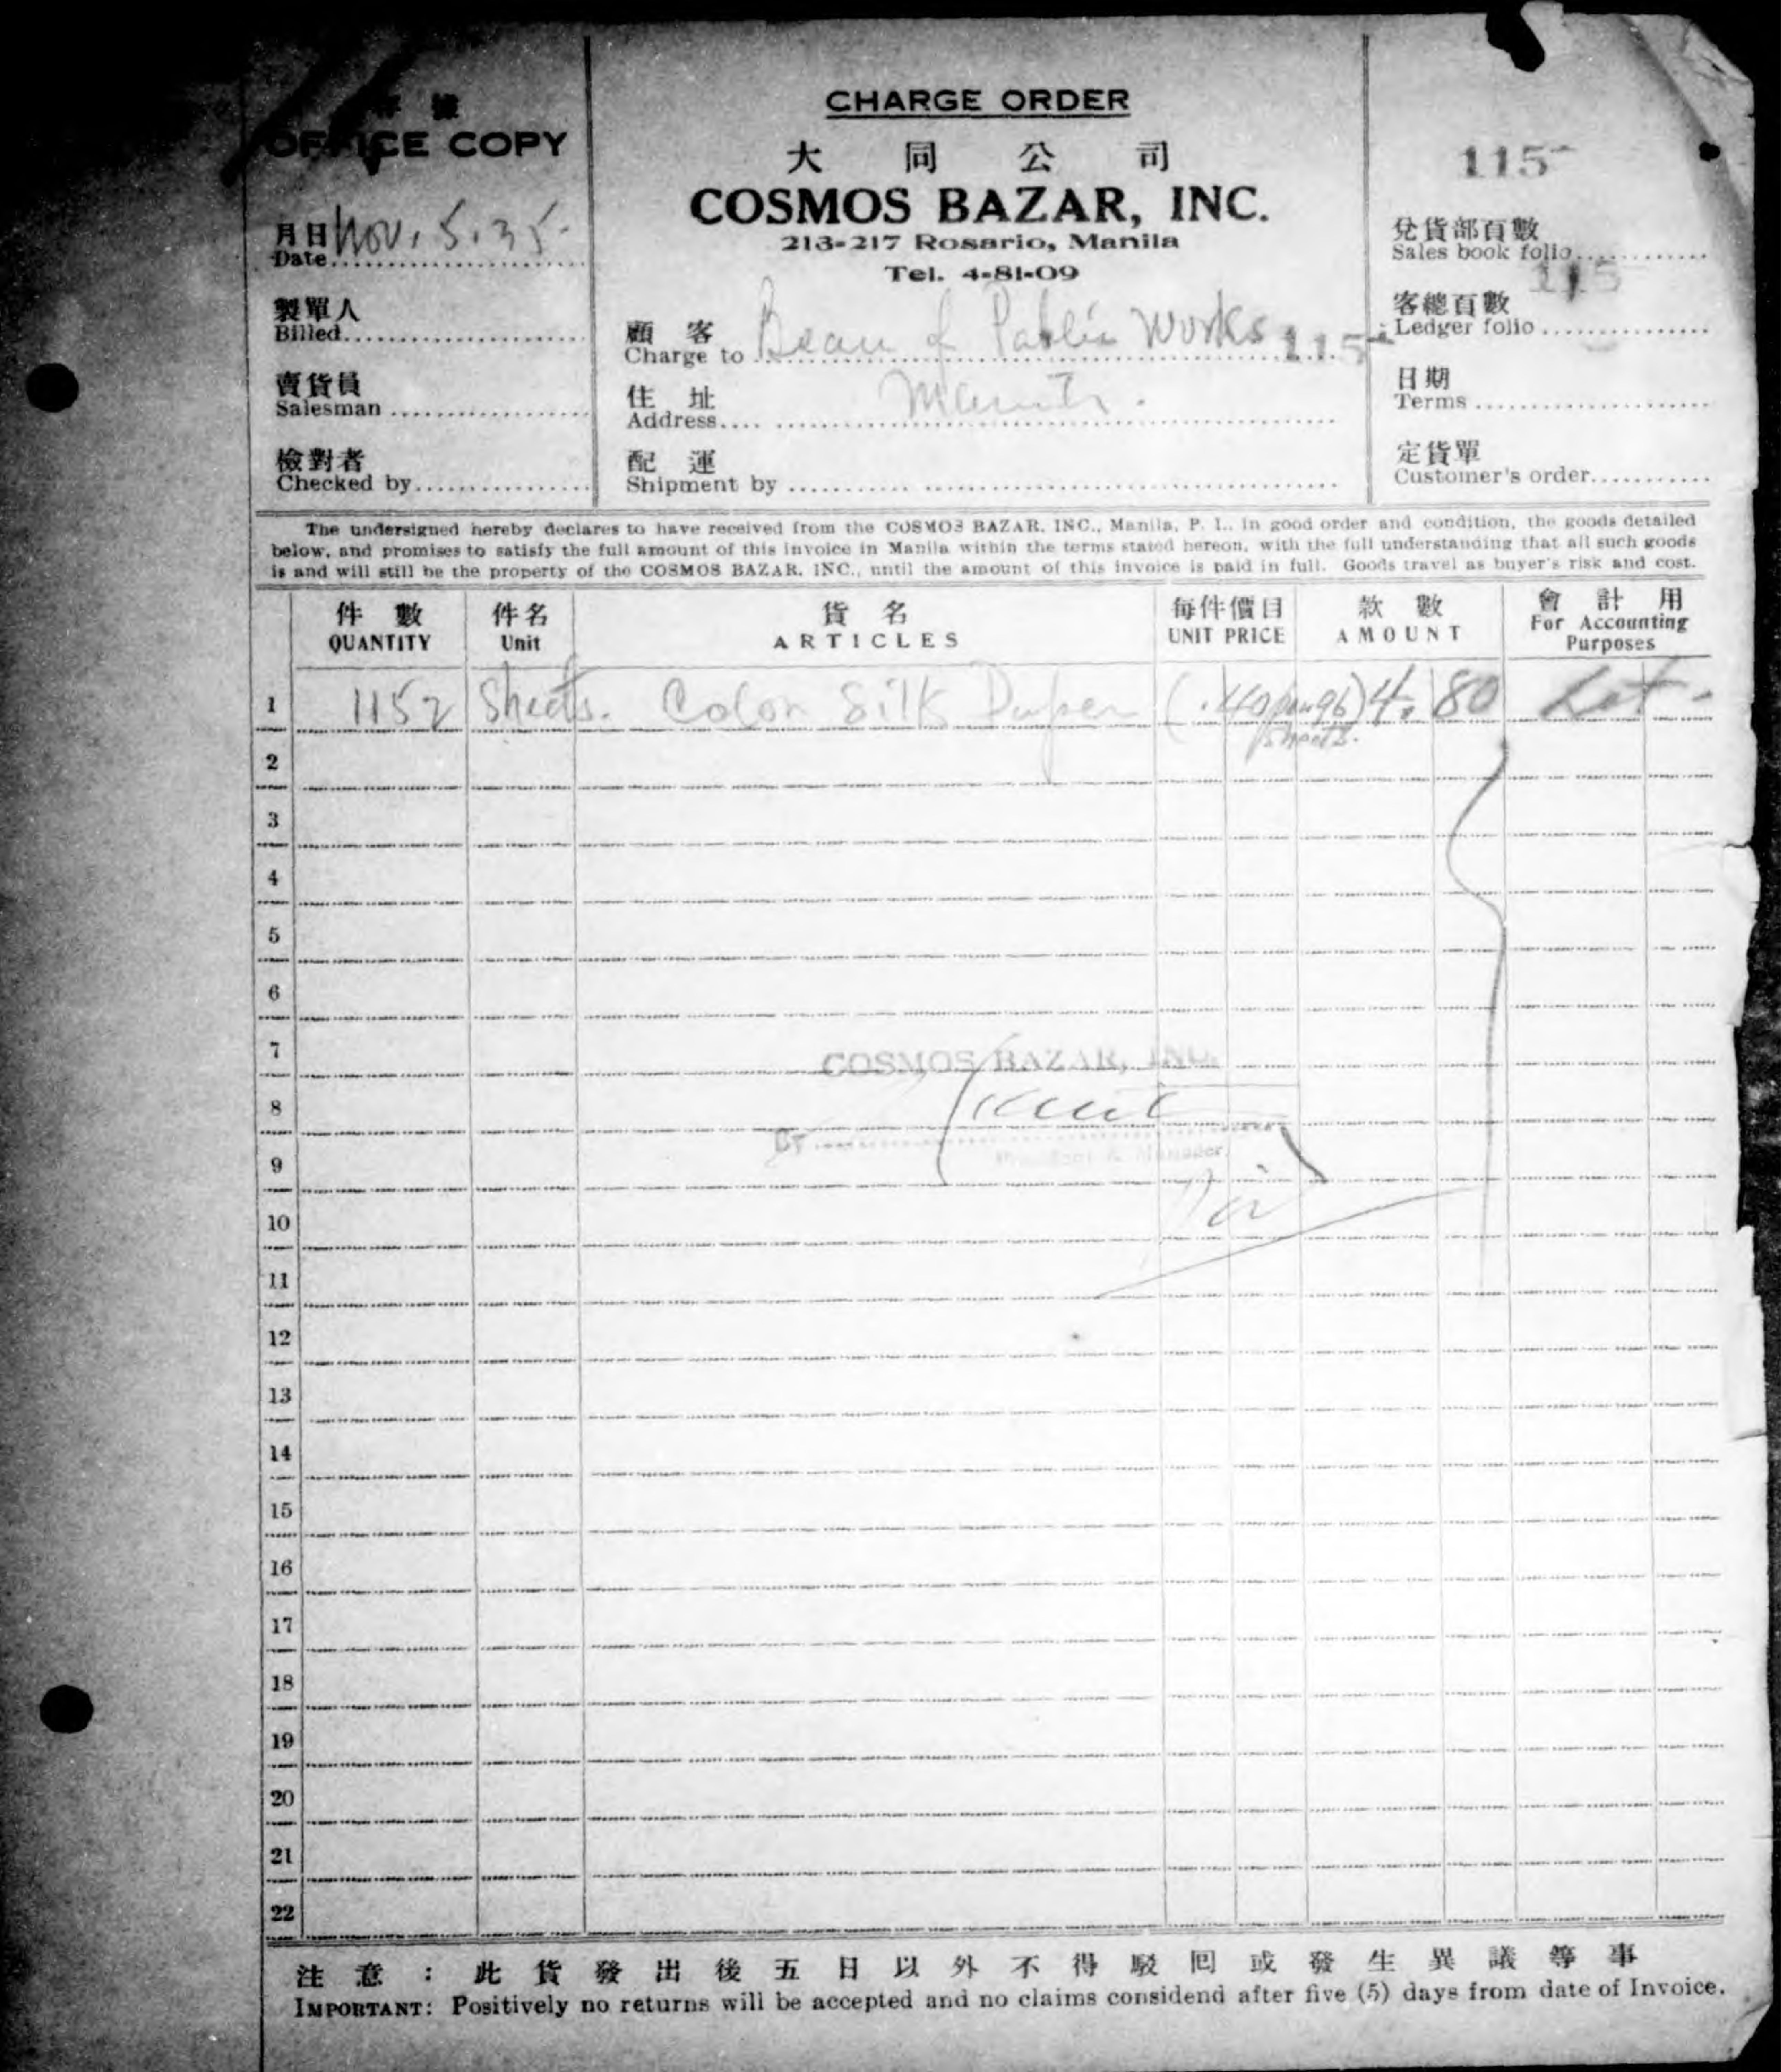 存 據
OFFICE COPY
月日
Date Nov. 5. 35.
製單人
Billed
賣貨員
Salesman
檢對者
Checked by
CHARGE ORDER
大 同 公 司
COSMOS BAZAR, INC.
213-217 Rosario, Manila
Tel. 4-81-09
顧 客
Charge to of Public Works 115
住 址
Address
配 運
Shipment by
115
兌貨部百數
Sales book folio
115
客總百數
Ledger folio
日期
Terms
定貨單
Customer's order
The undersigned hereby declares to have received from the COSMOS BAZAR, INC., Manila, P. I., in good order and condition, the goods detailed
below, and promises to satisfy the full amount of this invoice in Manila within the terms stated hereon, with the full understanding that all such goods
is and will still be the property of the COSMOS BAZAR, INC., until the amount of this invoice is paid in full. Goods travel as buyer's risk and cost.
件 數 件名 貨 名 每件價目 款 數 會 計 用
QUANTITY Unit ARTICLES UNIT PRICE AMOUNT For Accounting
Purposes
1 1152 Sheets. Color Silk Paper (.40 per 96) 4. 80 Lot.
sheets.
2
3
4
5
6
7 COSMOS BAZAR, INC.
8
By
President & Manager
9
10
11
12
13
14
15
16
17
18
19
20
21
22
注 意 : 此 貨 發 出 後 五 日 以 外 不 得 駁 回 或 發 生 異 議 等 事
IMPORTANT: Positively no returns will be accepted and no claims considend after five (5) days from date of Invoice.